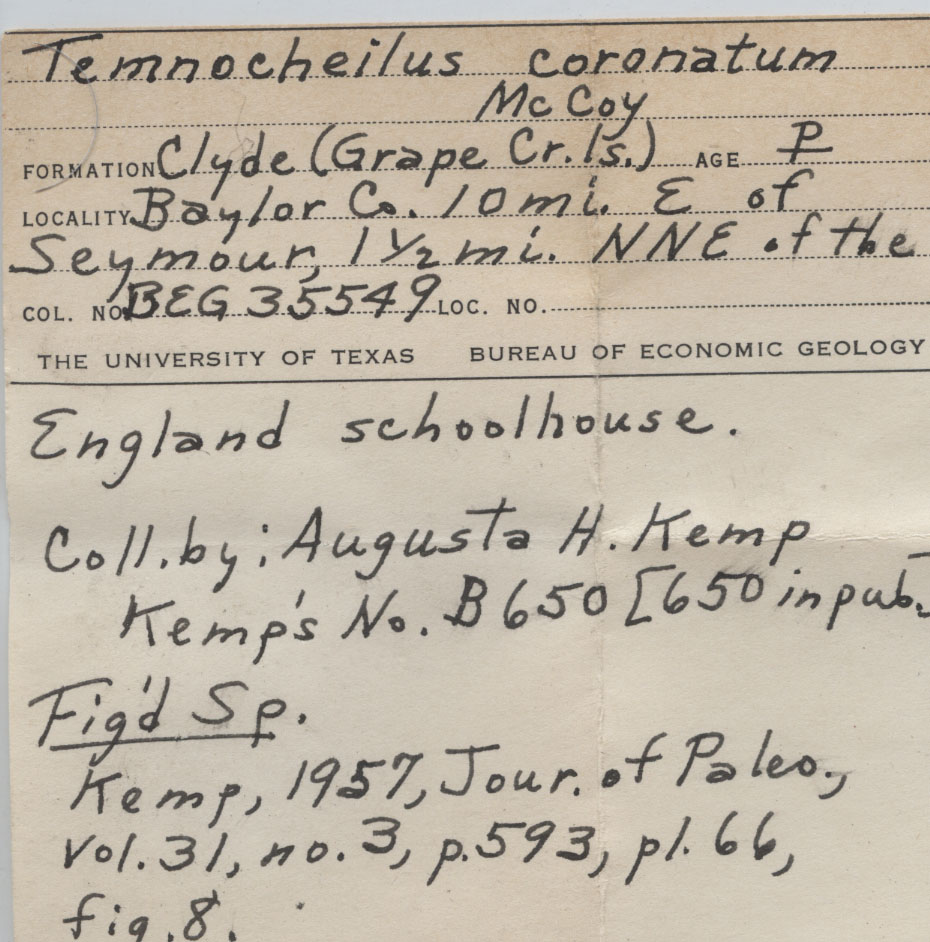 Temnocheilus coronatum
McCoy
FORMATION Clyde (Grape Cr. ls.) AGE P
LOCALITY Baylor Co. 10 mi. E of
Seymour, 1 1/2 mi. NNE of the
COL. NO. BEG 35549 LOC. NO.
THE UNIVERSITY OF TEXAS BUREAU OF ECONOMIC GEOLOGY
England schoolhouse.
Coll. by: Augusta H. Kemp
Kemp's No. B650 [650 in pub.]
Fig'd Sp.
Kemp, 1957, Jour. of Paleo.,
vol. 31, no. 3, p. 593, pl. 66,
fig. 8.